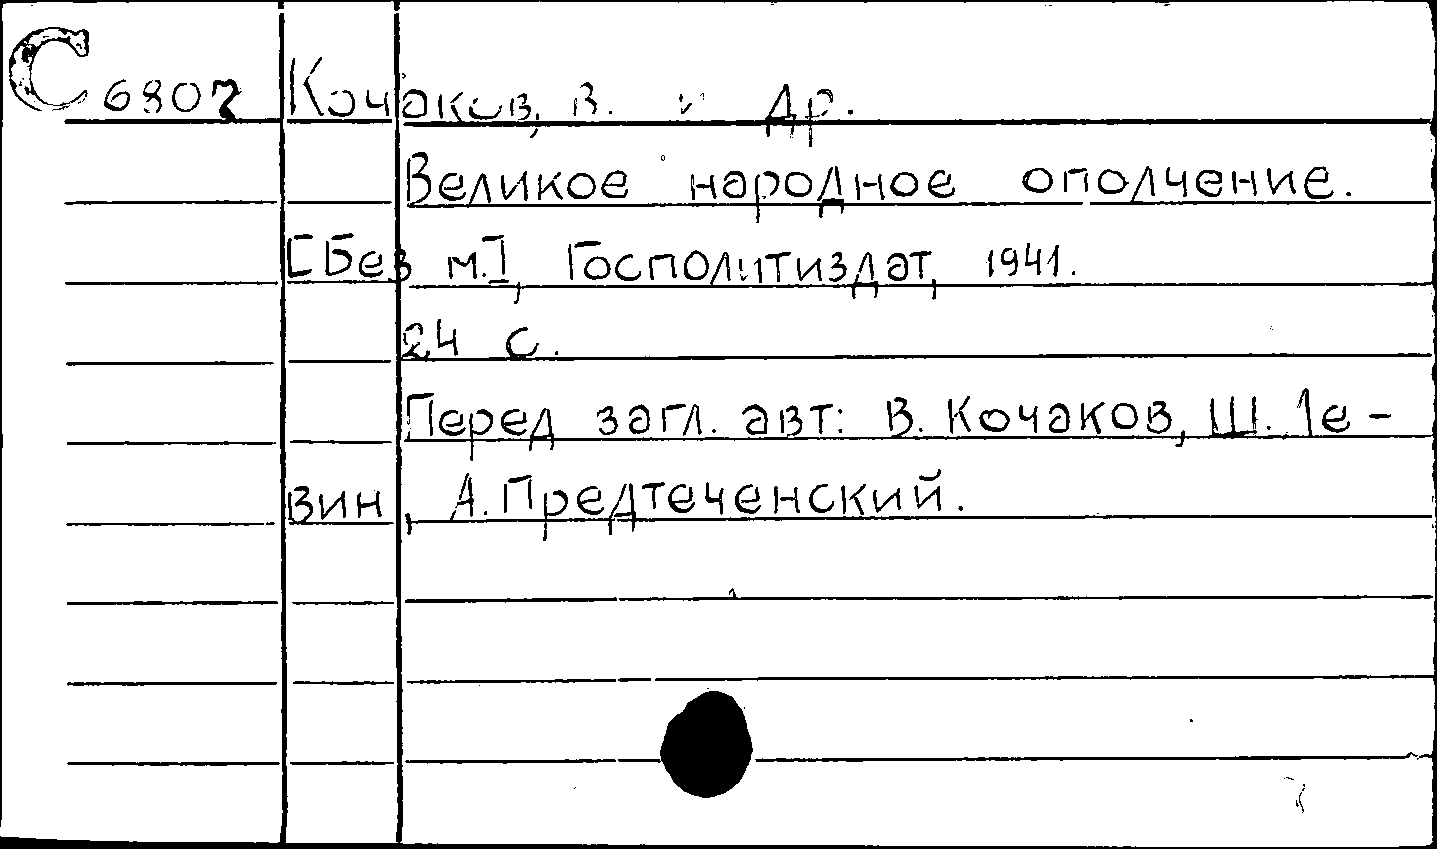 С 6807 Кочаков, В. и др.
Великое народное ополчение.
[Без м.], Госполитиздат, 1941.
24 с.
Перед загл. авт: В. Кочаков, Ш. Ле-
вин, А. Предтеченский.